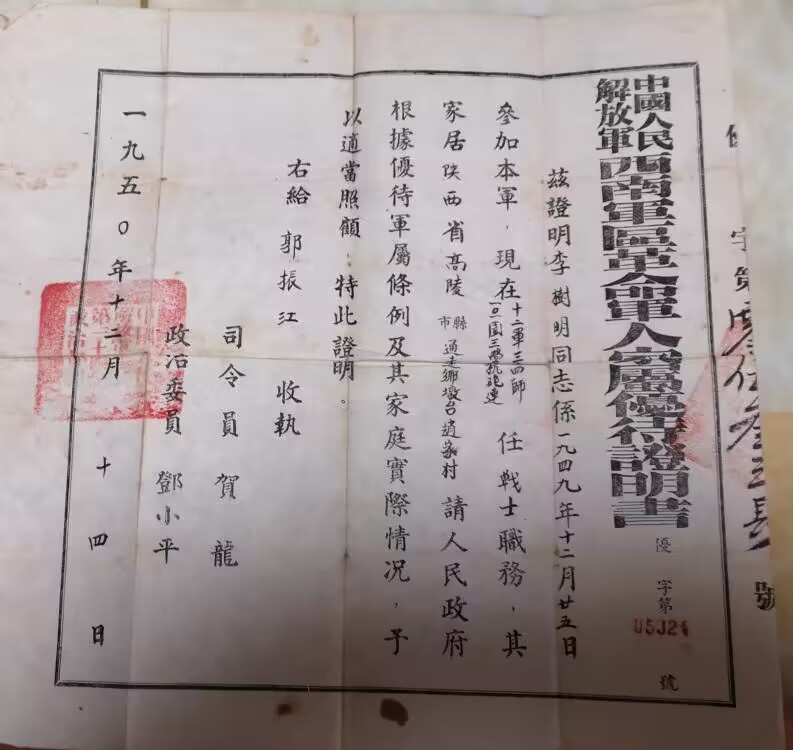 中國人民
解放軍
西南軍區革命軍人家屬優待證明書
優字第
號
茲證明李樹明同志係一九四九年十二月廿五日
參加本軍,現在十二軍三四師
一〇一團三營機砲連
任戰士職務,其
家居陝西省高陵縣
市
請人民政府
根據優待軍屬條例及其家庭實際情况,予
以適當照顧,特此證明。
右給郭振江收執
司令員賀龍
政治委員鄧小平
一九五〇年十二月十四日
字第
號